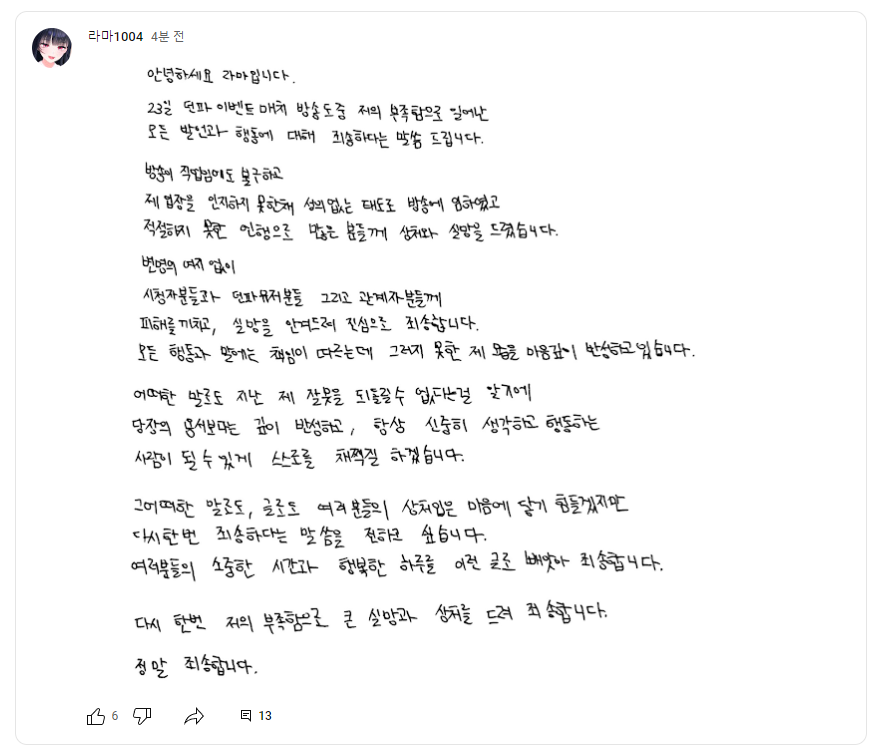 라마1004 4분 전
안녕하세요 라마입니다.
23일 던파 이벤트 매치 방송도중 저의 부족함으로 일어난
모든 발언과 행동에 대해 죄송하다는 말씀 드립니다.
방송이 직업임에도 불구하고
제 입장을 인지하지 못한채 성의없는 태도로 방송에 임하였고
적절하지 못한 언행으로 많은 분들께 상처와 실망을 드렸습니다.
변명의 여지 없이
시청자분들과 던파유저분들 그리고 관계자분들께
피해를 끼치고, 실망을 안겨드려 진심으로 죄송합니다.
모든 행동과 말에는 책임이 따르는데 그러지 못한 제 모습을 마음깊이 반성하고 있습니다.
어떠한 말로도 지난 제 잘못을 되돌릴수 없다는걸 알기에
당장의 용서보다는 깊이 반성하고, 항상 신중히 생각하고 행동하는
사람이 될 수 있게 스스로를 채찍질 하겠습니다.
그어떠한 말로도, 글로도 여러분들의 상처입은 마음에 닿기 힘들겠지만
다시한번 죄송하다는 말씀을 전하고 싶습니다.
여러분들의 소중한 시간과 행복한 하루를 이런 글로 빼앗아 죄송합니다.
다시 한번 저의 부족함으로 큰 실망과 상처를 드려 죄송합니다.
정말 죄송합니다.
6 13